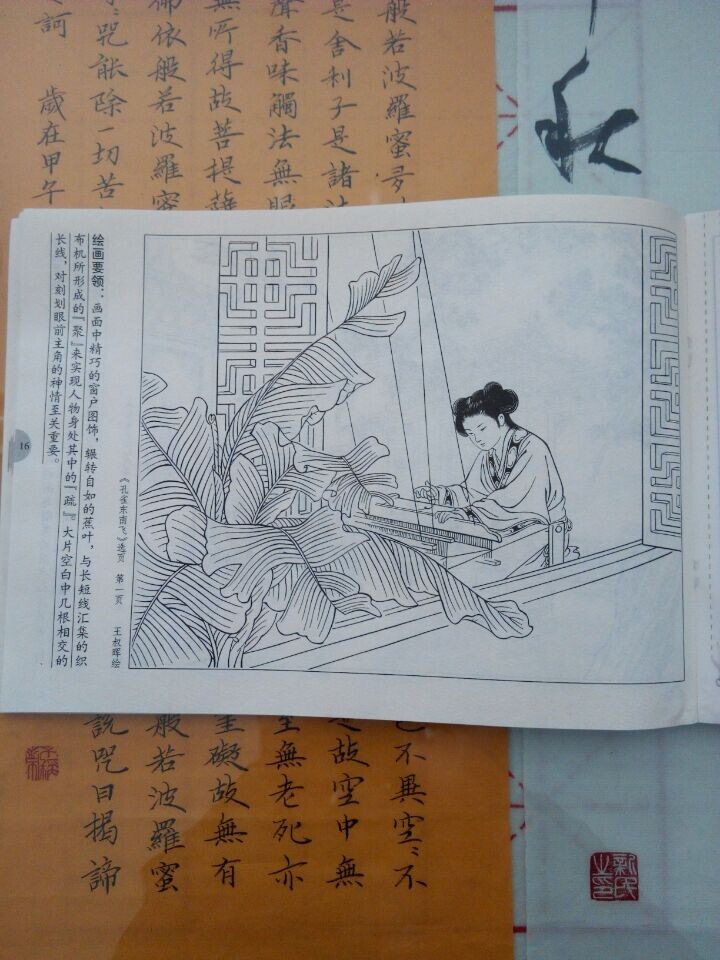 般若波羅蜜多
是舍利子是諸法
聲香味觸法無眼
無所得故菩提薩
依般若波羅蜜
咒能除一切苦
訶
歲在甲午
绘画要领：画面中精巧的窗户图饰，辗转自如的蕉叶，与长短线汇集的织
布机所形成的『聚』来实现人物身处其中的『疏』。大片空白中几根相交的
长线，对刻划眼前主角的神情至关重要。
16
《孔雀东南飞》选页 第一页 王叔晖绘
不異空〻不
是故空中無
至無老死亦
罣礙故無有
般若波羅蜜
說咒曰揭諦